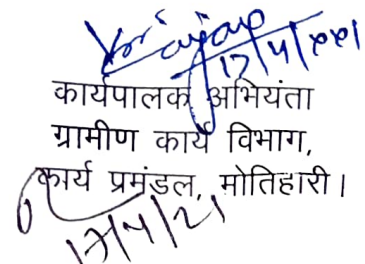 17/4/2021
कार्यपालक अभियंता
ग्रामीण कार्य विभाग,
कार्य प्रमंडल, मोतिहारी।
17/4/21